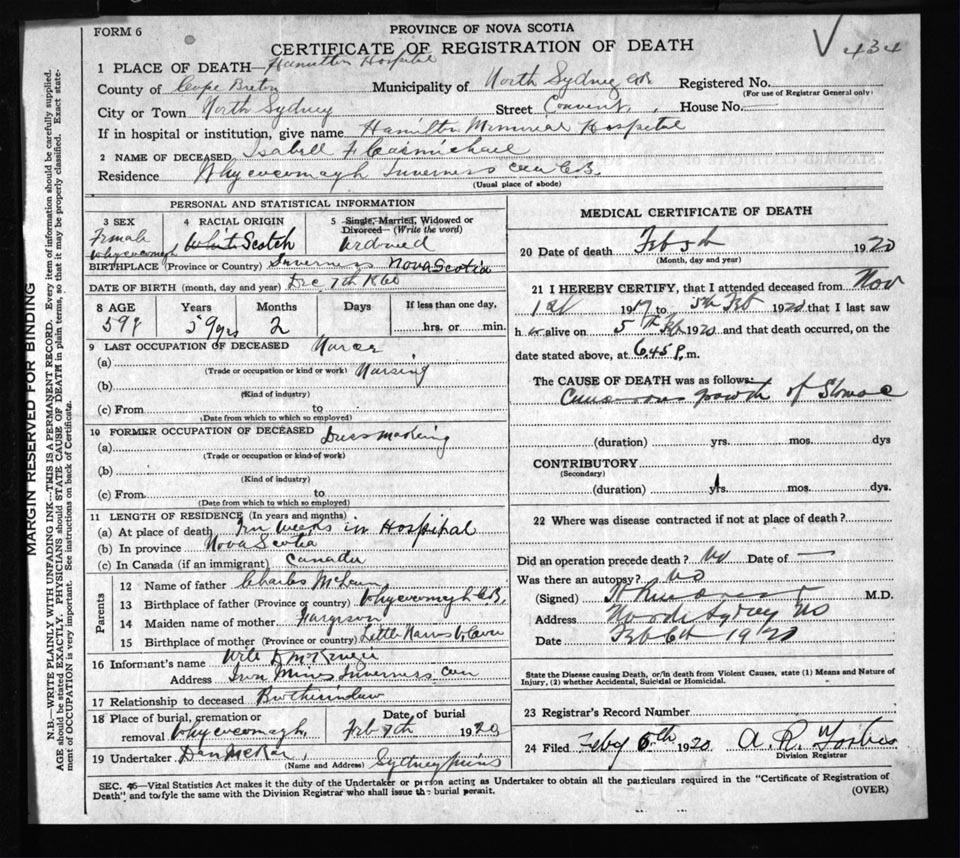 FORM 6
PROVINCE OF NOVA SCOTIA
CERTIFICATE OF REGISTRATION OF DEATH
√ 434
1 PLACE OF DEATH—Hamilton Hospital
County of Cape Breton Municipality of North Sydney CB Registered No.
(For use of Registrar General only)
City or Town North Sydney Street Convent House No. —
If in hospital or institution, give name Hamilton Memorial Hospital
2 NAME OF DECEASED Isabell F Carmichael
Residence Whycocomagh Inverness Cou C.B.
(Usual place of abode)
PERSONAL AND STATISTICAL INFORMATION
3 SEX 4 RACIAL ORIGIN 5 Single, Married, Widowed or Divorced—(Write the word)
Female White Scotch Widowed
Whycocomagh
BIRTHPLACE (Province or Country) Inverness Nova Scotia
DATE OF BIRTH (month, day and year) Dec 7th 1860
8 AGE Years Months Days If less than one day,
59 59 yrs 2 hrs. or min.
9 LAST OCCUPATION OF DECEASED Nurse
(a) Nursing
(Trade or occupation or kind or work)
(b)
(Kind of industry)
(c) From to
(Date from which to which so employed)
10 FORMER OCCUPATION OF DECEASED Dressmaking
(a)
(Trade or occupation or kind of work)
(b)
(Kind of industry)
(c) From to
(Date from which to which so employed)
11 LENGTH OF RESIDENCE (In years and months)
(a) At place of death weeks in Hospital
(b) In province Nova Scotia
(c) In Canada (if an immigrant) Canada
Parents
12 Name of father Charles McLean
13 Birthplace of father (Province or country) Whycocomagh C.B.
14 Maiden name of mother
15 Birthplace of mother (Province or country) Little Narrows
16 Informant's name
Address Iron Mines Inverness Cou
17 Relationship to deceased Brotherinlaw
18 Place of burial, cremation or removal Whycocomagh Date of burial Feb 7th 1920
19 Undertaker Dan McRae, Sydney Mines
(Name and Address)
MEDICAL CERTIFICATE OF DEATH
20 Date of death Feb 5th 1920
(Month, day and year)
21 I HEREBY CERTIFY, that I attended deceased from Nov
1st 1917 to 5th Feb 1920 that I last saw
h er alive on 5th Feb 1920 and that death occurred, on the
date stated above, at 6 45 P. m.
The CAUSE OF DEATH was as follows:
growth of Stomac
(duration) yrs. mos. dys
CONTRIBUTORY
(Secondary)
(duration) yrs. mos. dys.
22 Where was disease contracted if not at place of death?
Did an operation precede death? No Date of —
Was there an autopsy? No
(Signed) M.D.
Address North Sydney NS
Date Feb 6th 1920
State the Disease causing Death, or/in death from Violent Causes, state (1) Means and Nature of Injury, (2) whether Accidental, Suicidal or Homicidal.
23 Registrar's Record Number
24 Filed Feby 6th 1920 A. R. Forbes
Division Registrar
SEC. 46—Vital Statistics Act makes it the duty of the Undertaker or person acting as Undertaker to obtain all the particulars required in the "Certificate of Registration of
Death" and to fyle the same with the Division Registrar who shall issue the burial permit. (OVER)
MARGIN RESERVED FOR BINDING
N.B.—WRITE PLAINLY WITH UNFADING INK—THIS IS A PERMANENT RECORD. Every item of information should be carefully supplied.
AGE should be stated EXACTLY. PHYSICIANS should STATE CAUSE OF DEATH in plain terms, so that it may be properly classified. Exact state-
ment of OCCUPATION is very important. See instructions on back of Certificate.